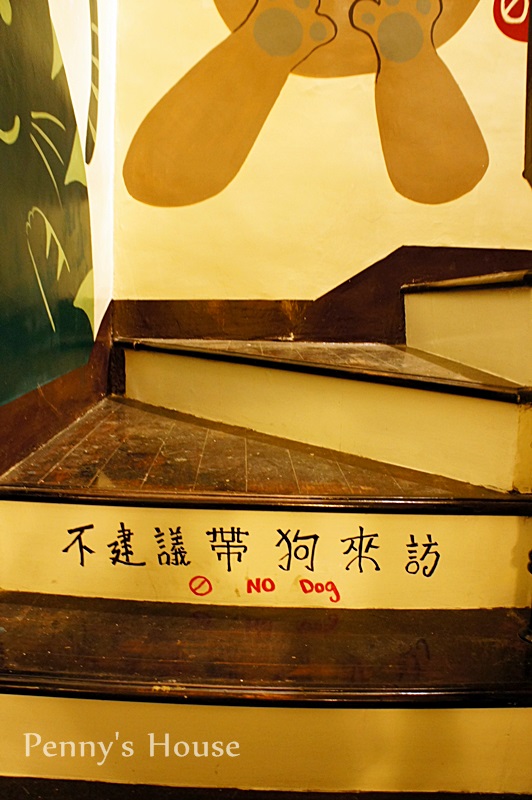 不建議帶狗來訪
NO Dog
Penny's House